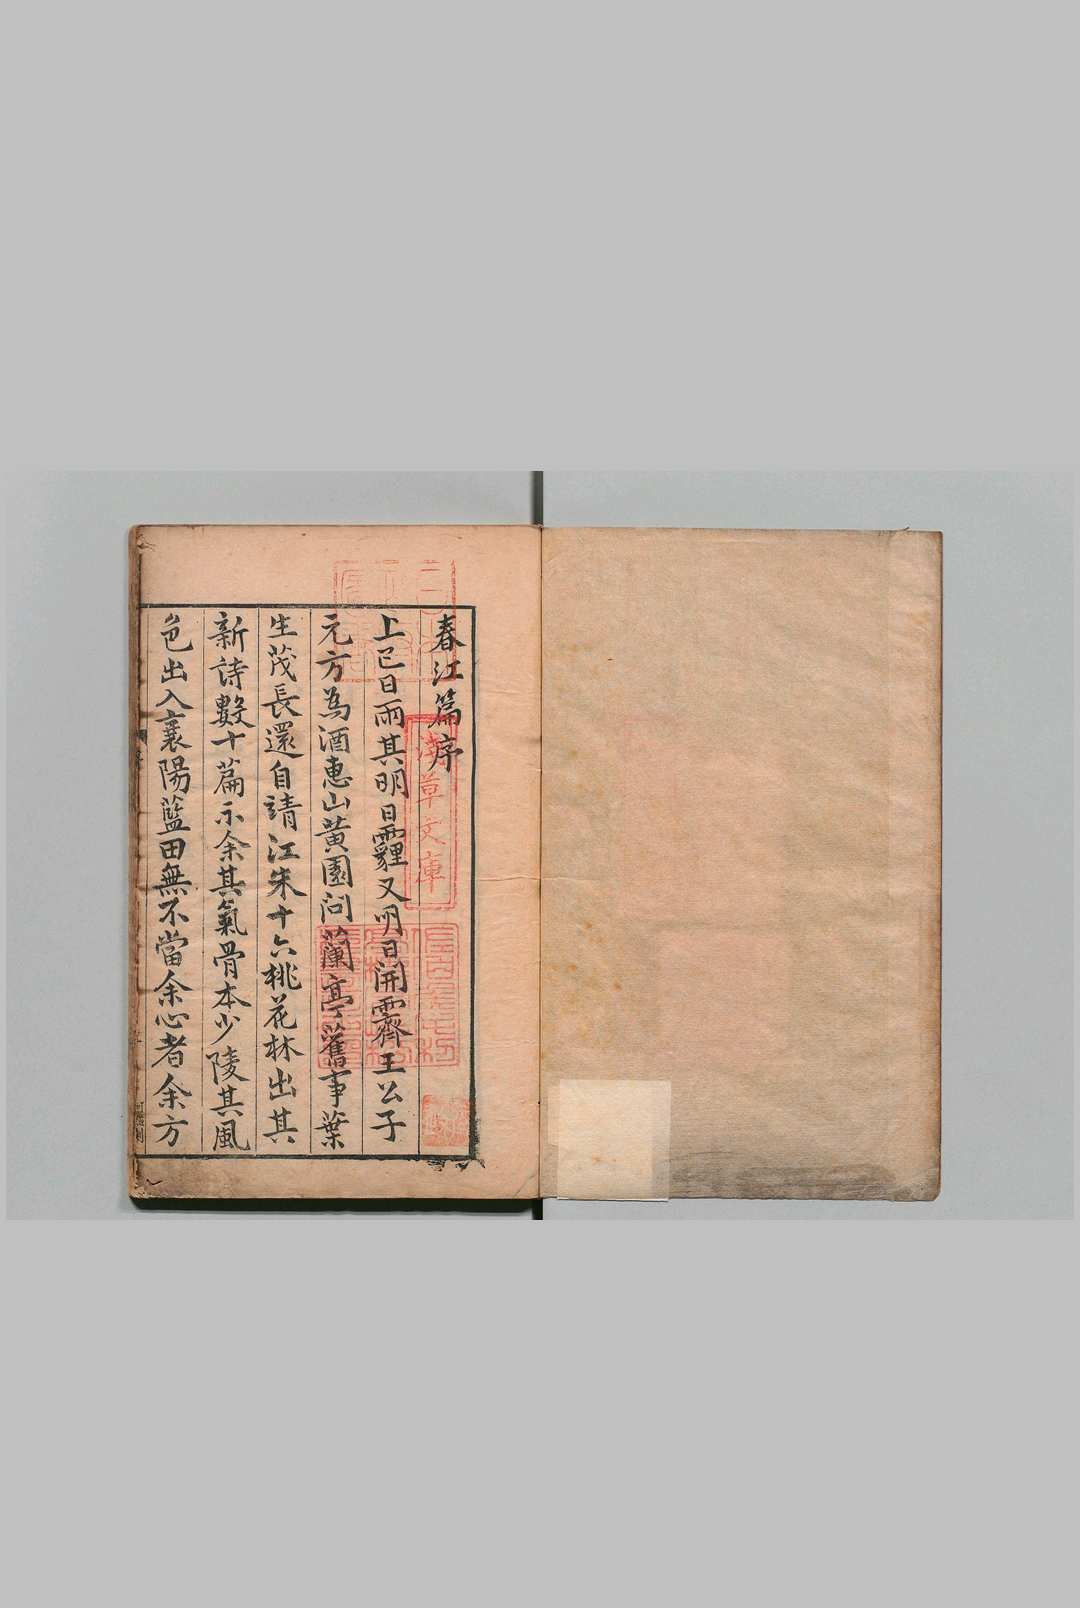 春江篇序
上巳日雨其明日霾又明日開霽王公子
元方為酒惠山黃園問蘭亭舊事葉
生茂長還自請江朱十六桃花林出其
新詩數十篇示余其氣骨本少陵其風
色出入襄陽藍田無不當余心者余方
草文庫